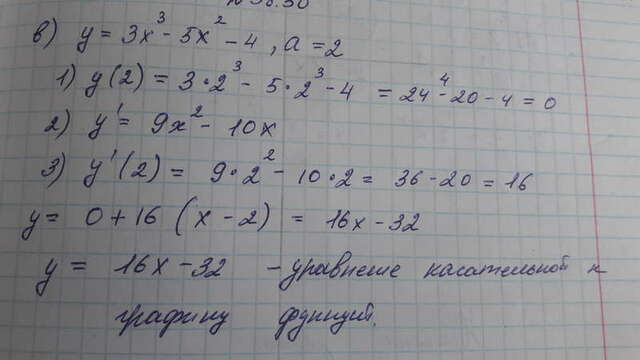 в) y = 3x³ - 5x² - 4, a = 2
1) y(2) = 3·2³ - 5·2³ - 4 = 24⁴ - 20 - 4 = 0
2) y' = 9x² - 10x
3) y'(2) = 9·2² - 10·2 = 36 - 20 = 16
y = 0 + 16 (x - 2) = 16x - 32
y = 16x - 32 - уравнение касательной к
графику функций.